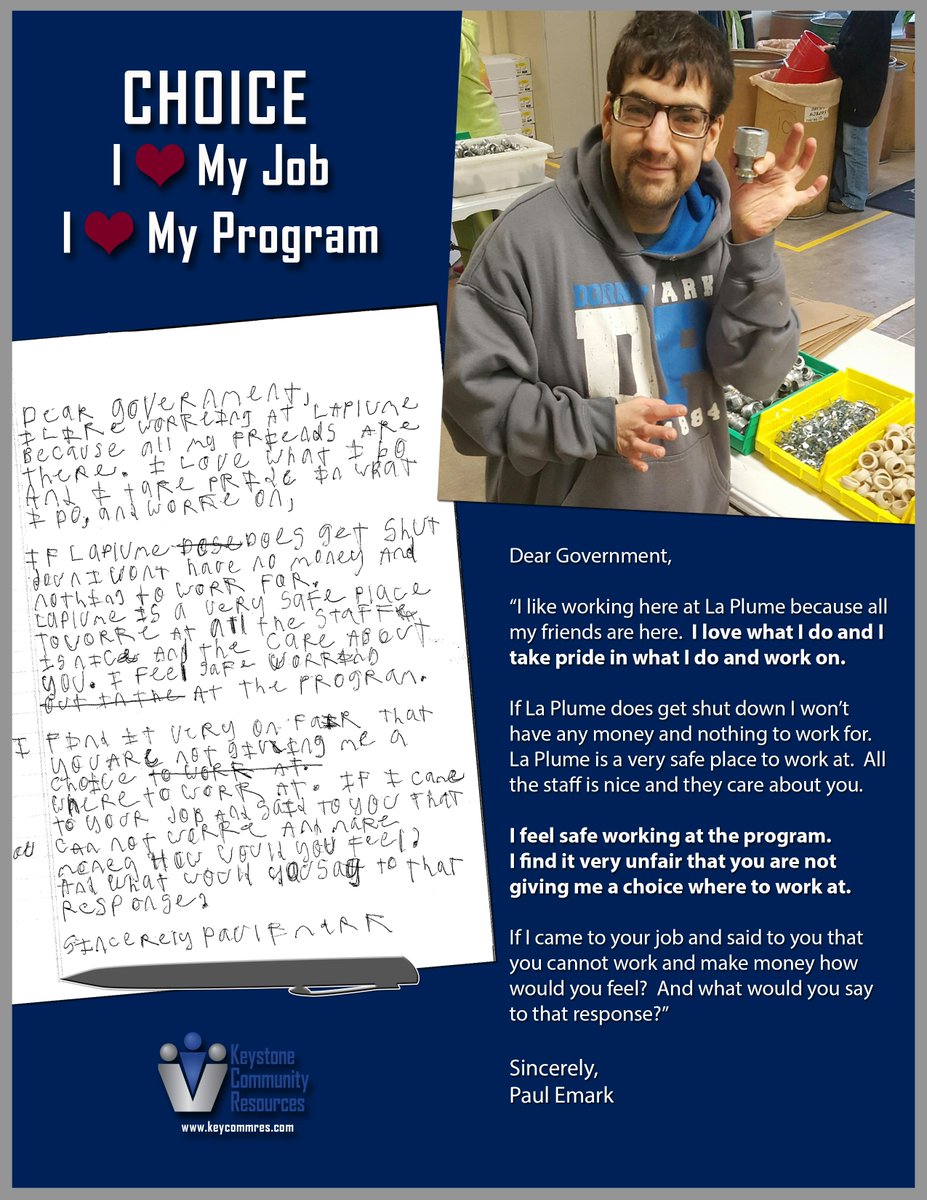 CHOICE
I ❤ My Job
I ❤ My Program
DORN PARK
1884
DEAR GOVERNMENT,
I LIKE WORKEING AT LAPLUME
BECAUSE all my FRIENDS ARE
THERE. I LOVE WHAT I DO
AND I TAKE PRIDE IN WHAT
I DO, AND WORKE ON,
IF LAPLUME DOSE DOES GET SHUT
DOWN I WONT HAVE NO MONEY AND
NOTHING TO WORK FOR.
LAPLUME IS A VERY SAFE PLACE
TO WORKE AT all THE STAFF
IS NICE AND THE CARE ABOUT
YOU. I FEEL SAFE WORKING
OUT IN THE AT THE PROGRAM.
I FIND IT VERY ON FAIR THAT
YOU ARE NOT GIVEING ME A
CHOICE TO WORK AT.
WHERE TO WORK AT. IF I CAME
TO YOUR JOB AND SAID TO YOU THAT
CAN NOT WORKE AND MAKE
MONEY HOW WOULD YOU FEEL?
AND WHAT WOULD YOU SAY TO THAT
RESPONSE?
SINCERELY PAUL EMARK
Dear Government,
“I like working here at La Plume because all
my friends are here. I love what I do and I
take pride in what I do and work on.
If La Plume does get shut down I won’t
have any money and nothing to work for.
La Plume is a very safe place to work at. All
the staff is nice and they care about you.
I feel safe working at the program.
I find it very unfair that you are not
giving me a choice where to work at.
If I came to your job and said to you that
you cannot work and make money how
would you feel? And what would you say
to that response?”
Sincerely,
Paul Emark
Keystone
Community
Resources
www.keycommres.com